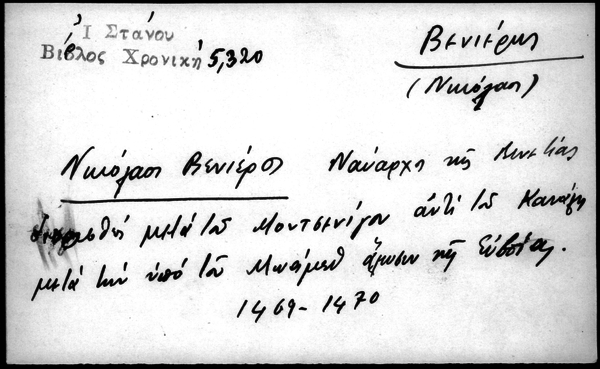 Ἰ Στάνου
Βίβλος Χρονική 5,320
Βενιέρης
(Νικόλαος)
Νικόλαος Βενιέρος Ναύαρχος τῆς Βενετίας
μετά τοῦ Μοντσενίγου ἀντί τοῦ Κανάλη
μετά τήν ὑπό τοῦ Μωάμεθ ἅλωσιν τῆς Εὐβοίας.
1469-1470